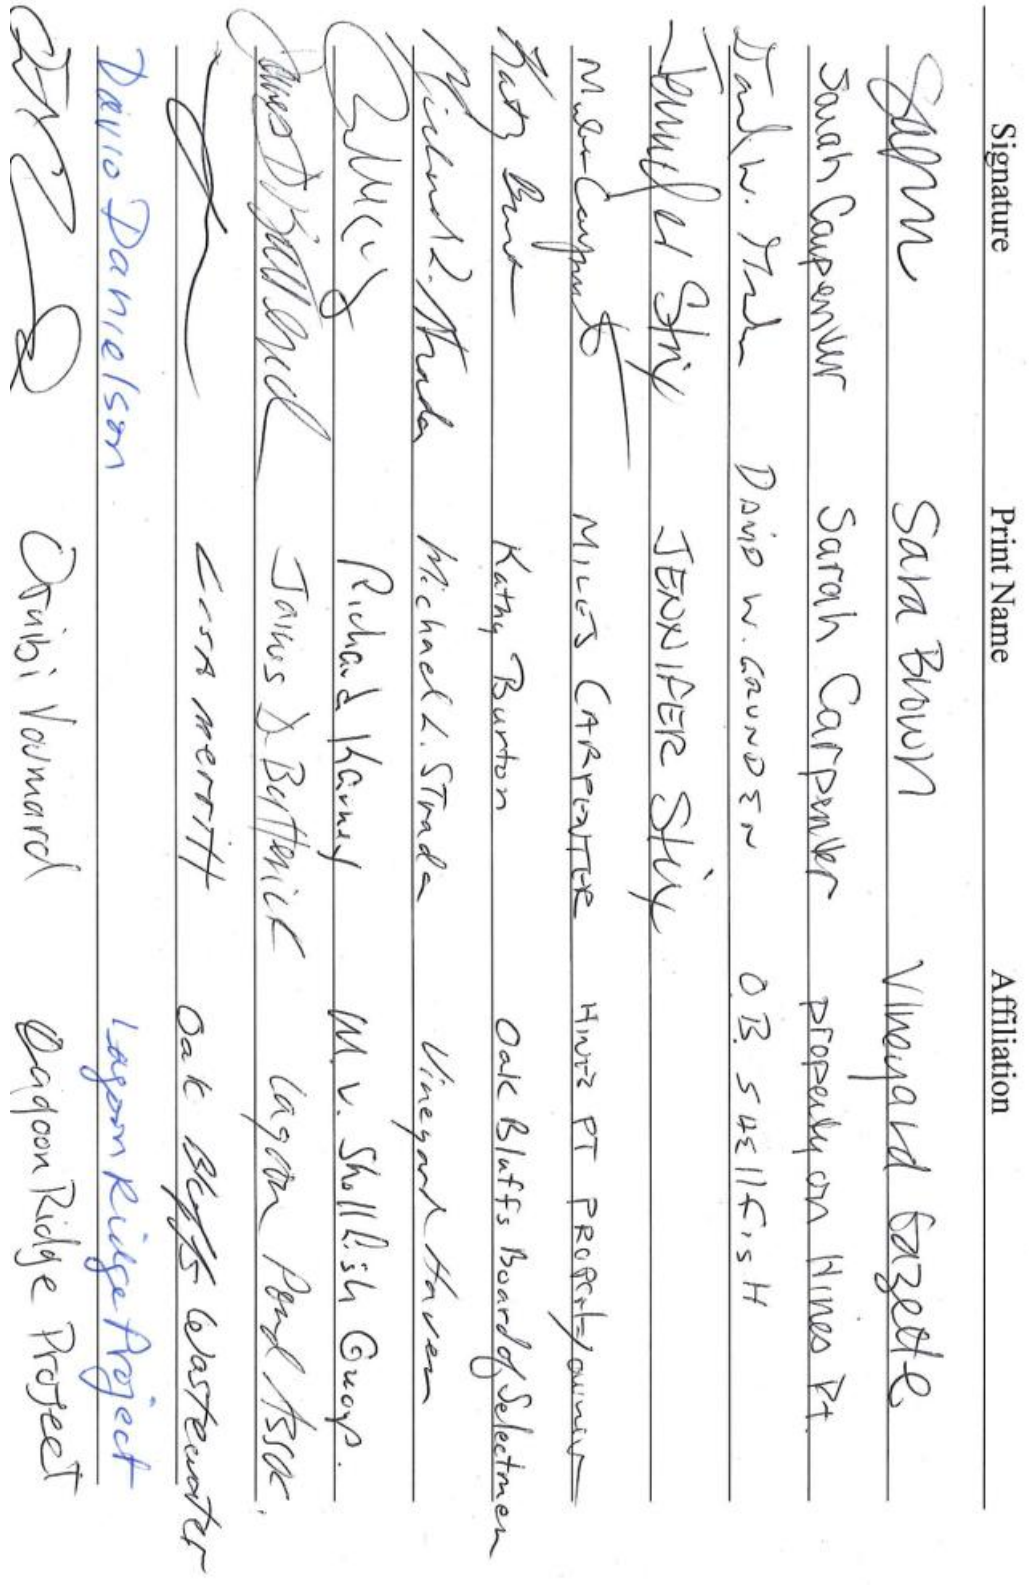 Signature Print Name Affiliation
Sara Brown Vineyard Gazette
Sarah Carpenter Sarah Carpenter property on Hines Pt.
David W. Grunden DAVID W. GRUNDEN O.B. SHEllFisH
Jennifer Stix JENNIFER Stix
Miles Carpenter MILES CARPENTER HINES PT PROPERTY OWNER
Kathy Burton Kathy Burton Oak Bluffs Board of Selectmen
Michael L. Strada Michael L. Strada Vineyard Haven
Richard Karney M.V. Shellfish Group.
James D. Butterick James D. Butterick Lagoon Pond Assoc.
LISA merritt Oak Bluffs Wastewater
David Danielson Lagoon Ridge Project
Lagoon Ridge Project